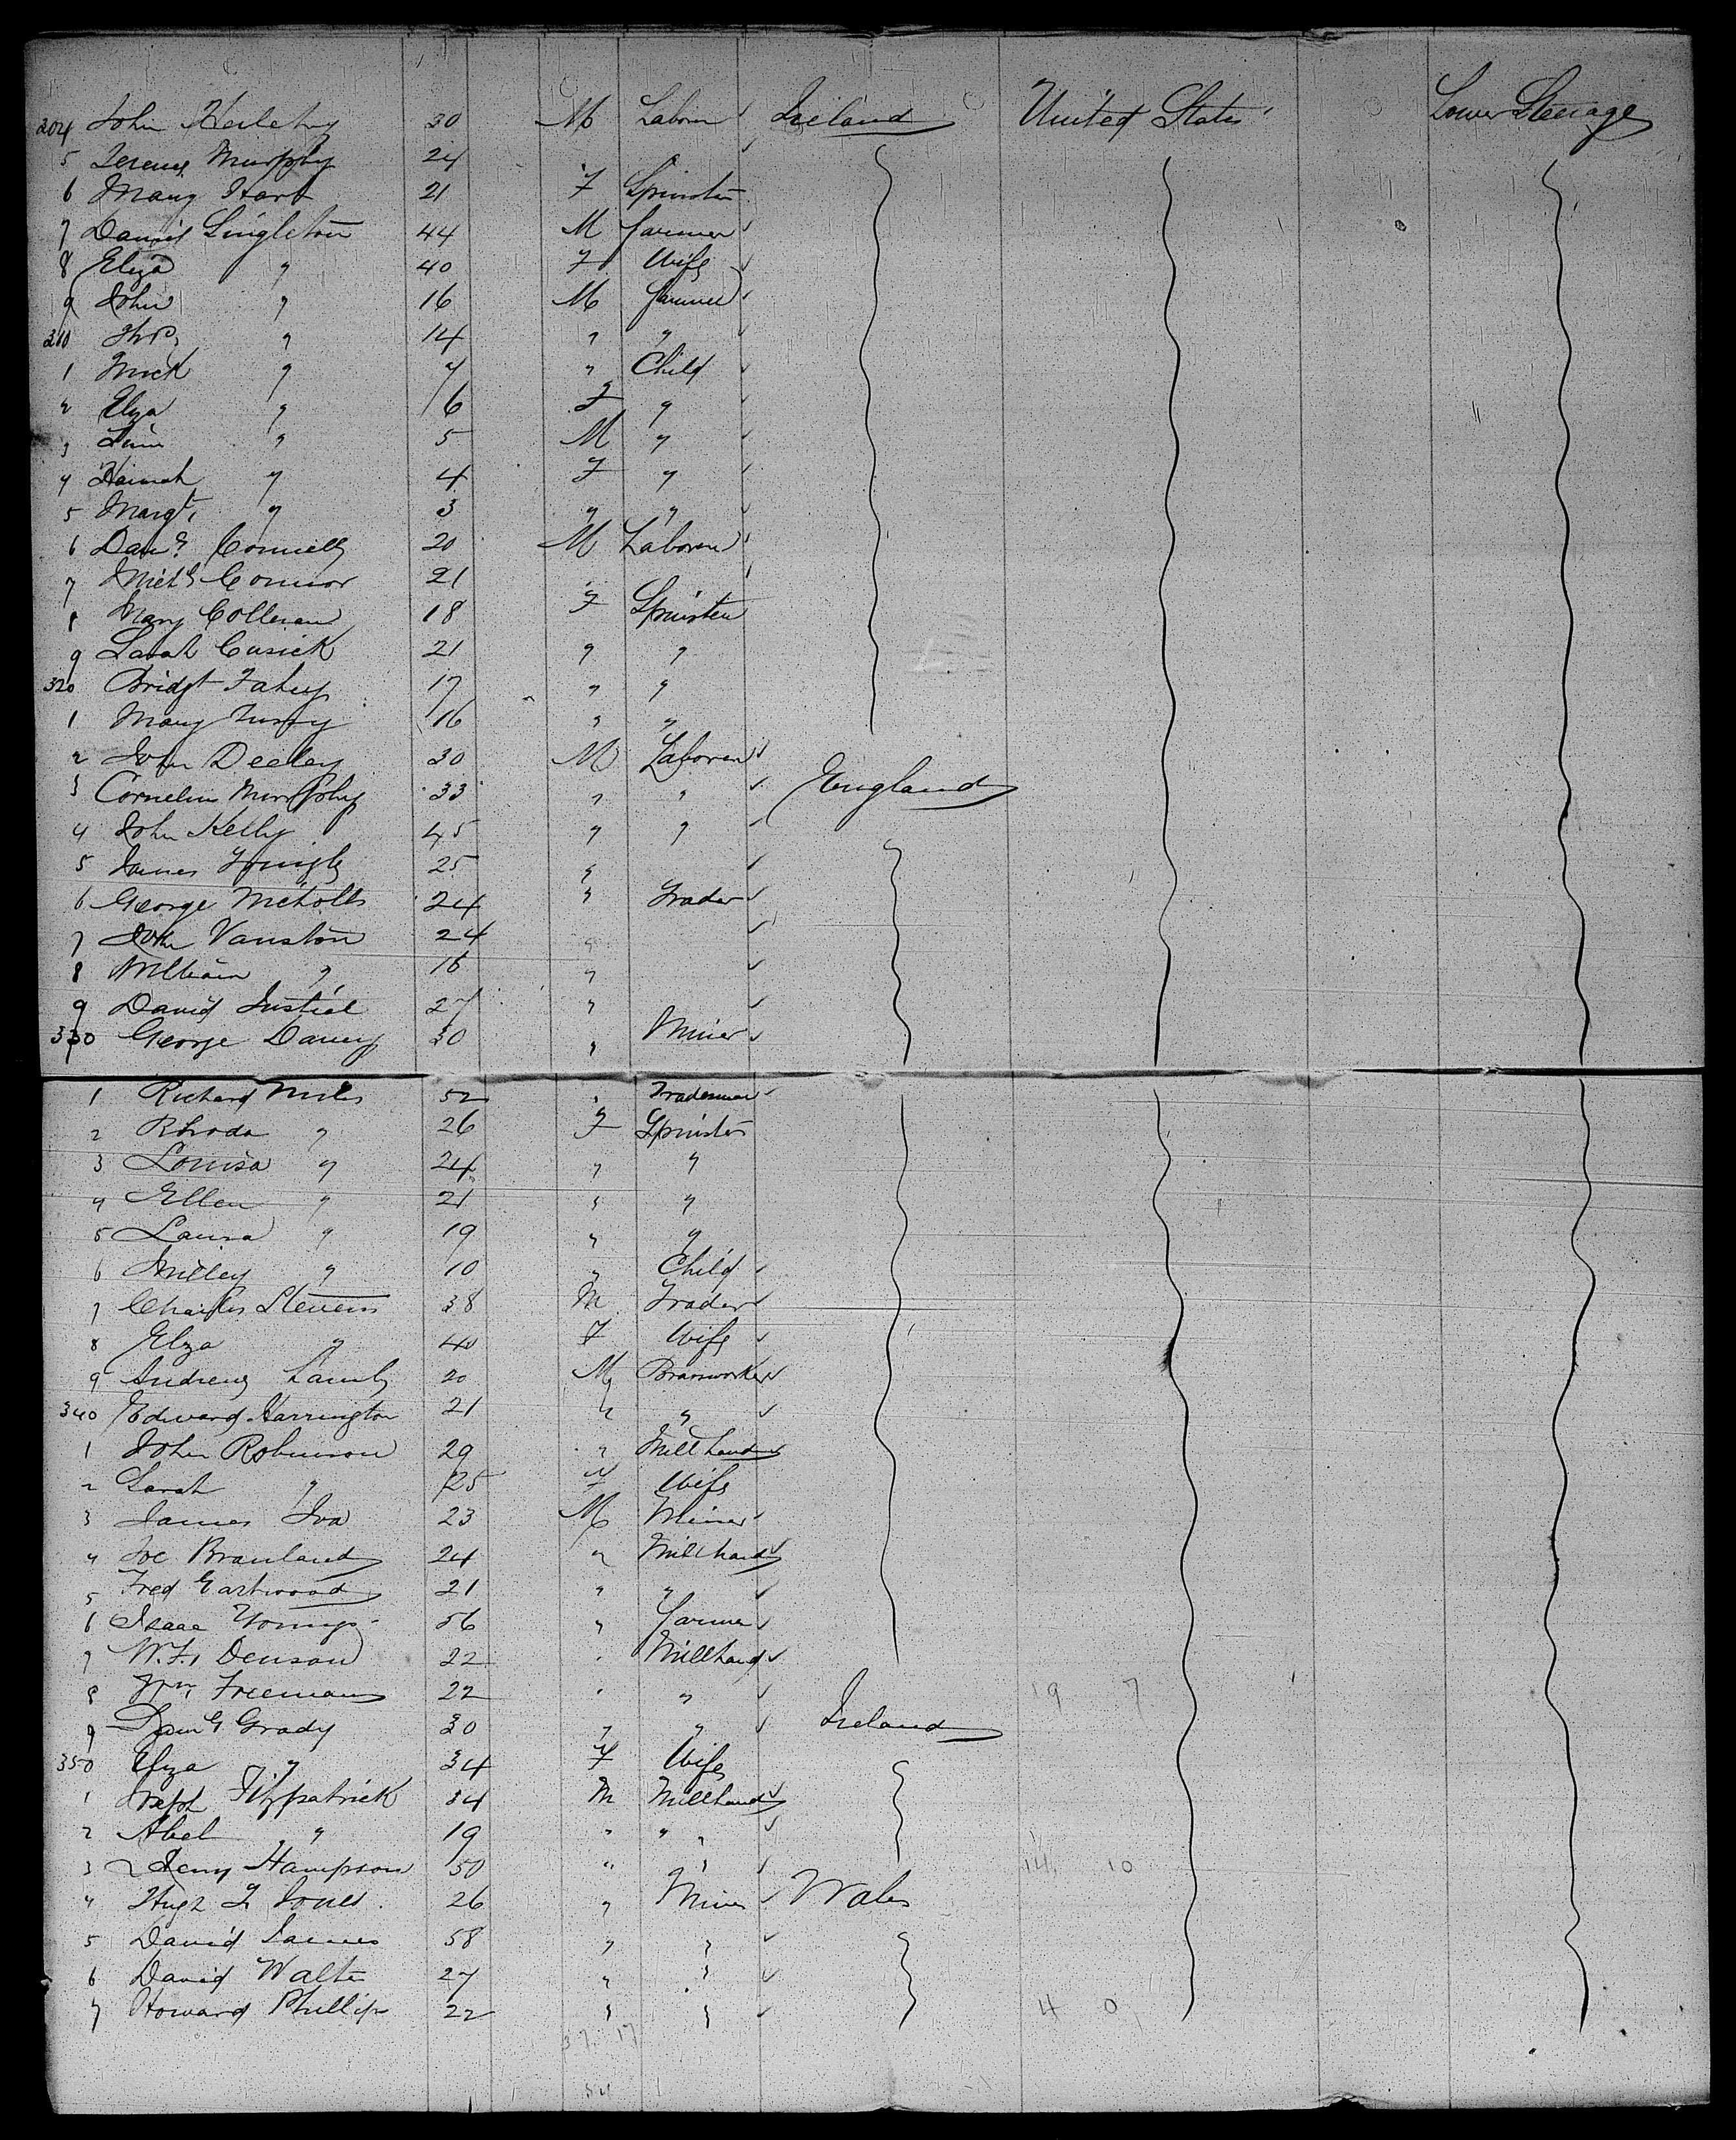 204 John 30 M Labour Ireland United States Lower Steerage
5 Terence Murphy 24 "
6 Mary Hart 21 F Spinster
7 Daniel Singleton 44 M farmer
8 Eliza " 40 F Wife
9 John " 16 M farmer
210 Thos " 14 " "
1 Mick " 7 " Child
2 Elza " 6 F "
3 " 5 M "
4 Hannah " 4 F "
5 Margt, " 3 " "
6 Danl Connelly 20 M Laborer
7 Michl Connor 21 "
8 Mary Colleran 18 F Spinster
9 Sarah Cusick 21 " "
320 Bridgt Fahey 17 " "
1 Mary 16 " "
2 John Deeley 30 M Laborer
3 Cornelius Murphy 33 " " England
4 John Kelly 45 " "
5 James 25 "
6 George Nicholls 24 " Trader
7 John Vanston 24 "
8 William " 16 "
9 David 27 "
330 George Davey 30 " Miner
1 Richard Miles 52 " Tradesman
2 Rhoda " 26 F Spinster
3 Louisa " 24 " "
4 Ellen " 21 " "
5 Laura " 19 " "
6 Milley " 10 " Child
7 Charles Stevens 38 M Trader
8 Elza " 40 F Wife
9 Andrew Lamb 20 M Brassworker
340 Edward Harrington 21 " "
1 John Robinson 29 " Mill hand
2 Sarah " 25 F Wife
3 James Iva 23 M Miner
4 Joe Branland 24 " Millhand
5 Fred Eastwood 21 " "
6 Isaac Youngs 56 " farmer
7 W. F. Denson 22 " Millhand
8 Wm, Freeman 22 " " 19 7
9 Danl Grady 30 " " Ireland
350 Eliza " 34 F Wife
1 Joseph Fitzpatrick 34 M Millhand
2 Abel " 19 " " "
3 Hampson 50 " " 14 10
4 Hugh Jones. 26 " Miner Wales
5 David James 58 " "
6 David Walter 27 " "
7 Howard Phillips 22 " " 4 0
37 17
54